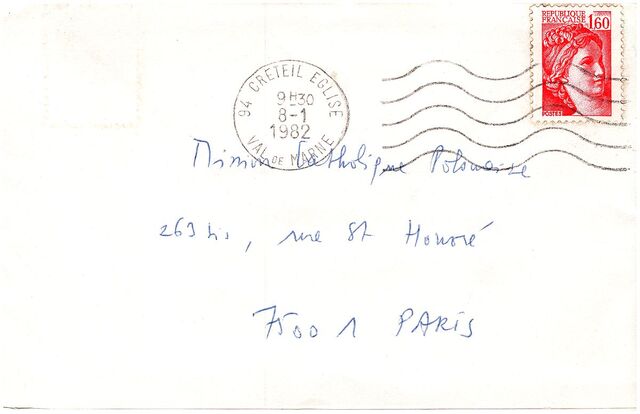 REPUBLIQUE
FRANÇAISE 1,60
POSTES
94 CRETEIL EGLISE
9H30
8-1
1982
VAL DE MARNE
Mission Catholique Polonaise
263 bis, rue St Honoré
75001 PARIS